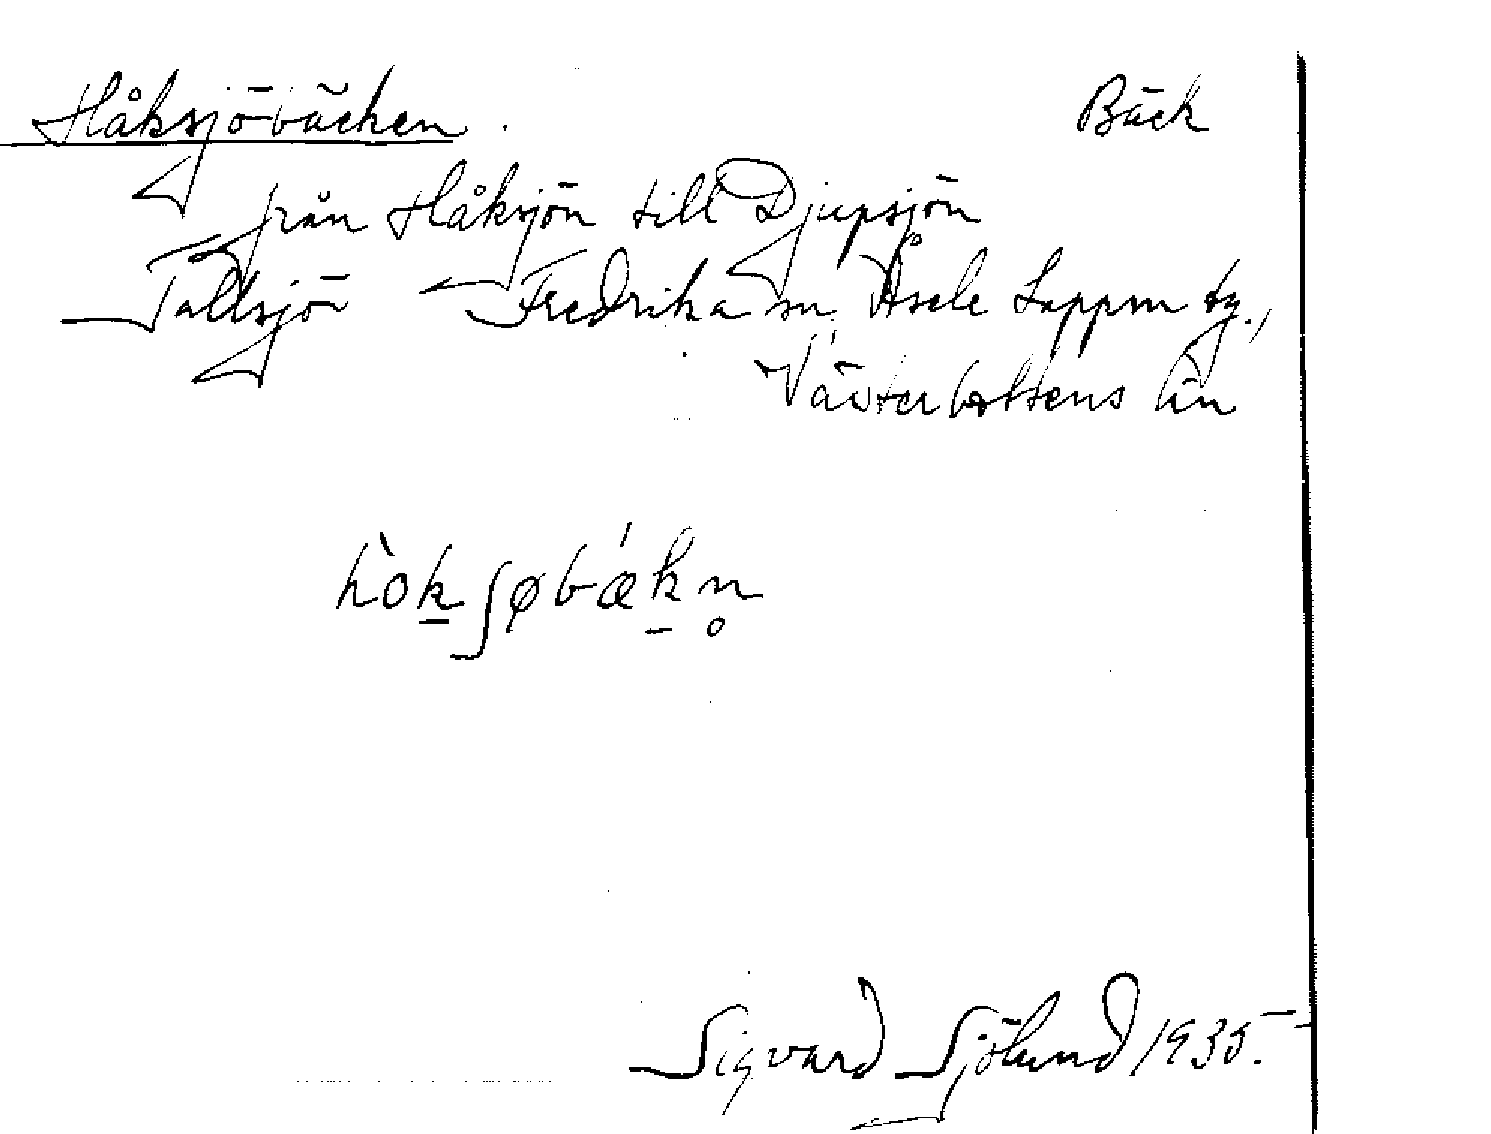 Håksjöbäcken. Bäck
från Håksjön till Djupsjön
Tallsjö Fredrika sn. Åsele Lappm tg.,
Västerbottens län
hòkʃøbǽkn̥
Sigvard Sjölund 1935.